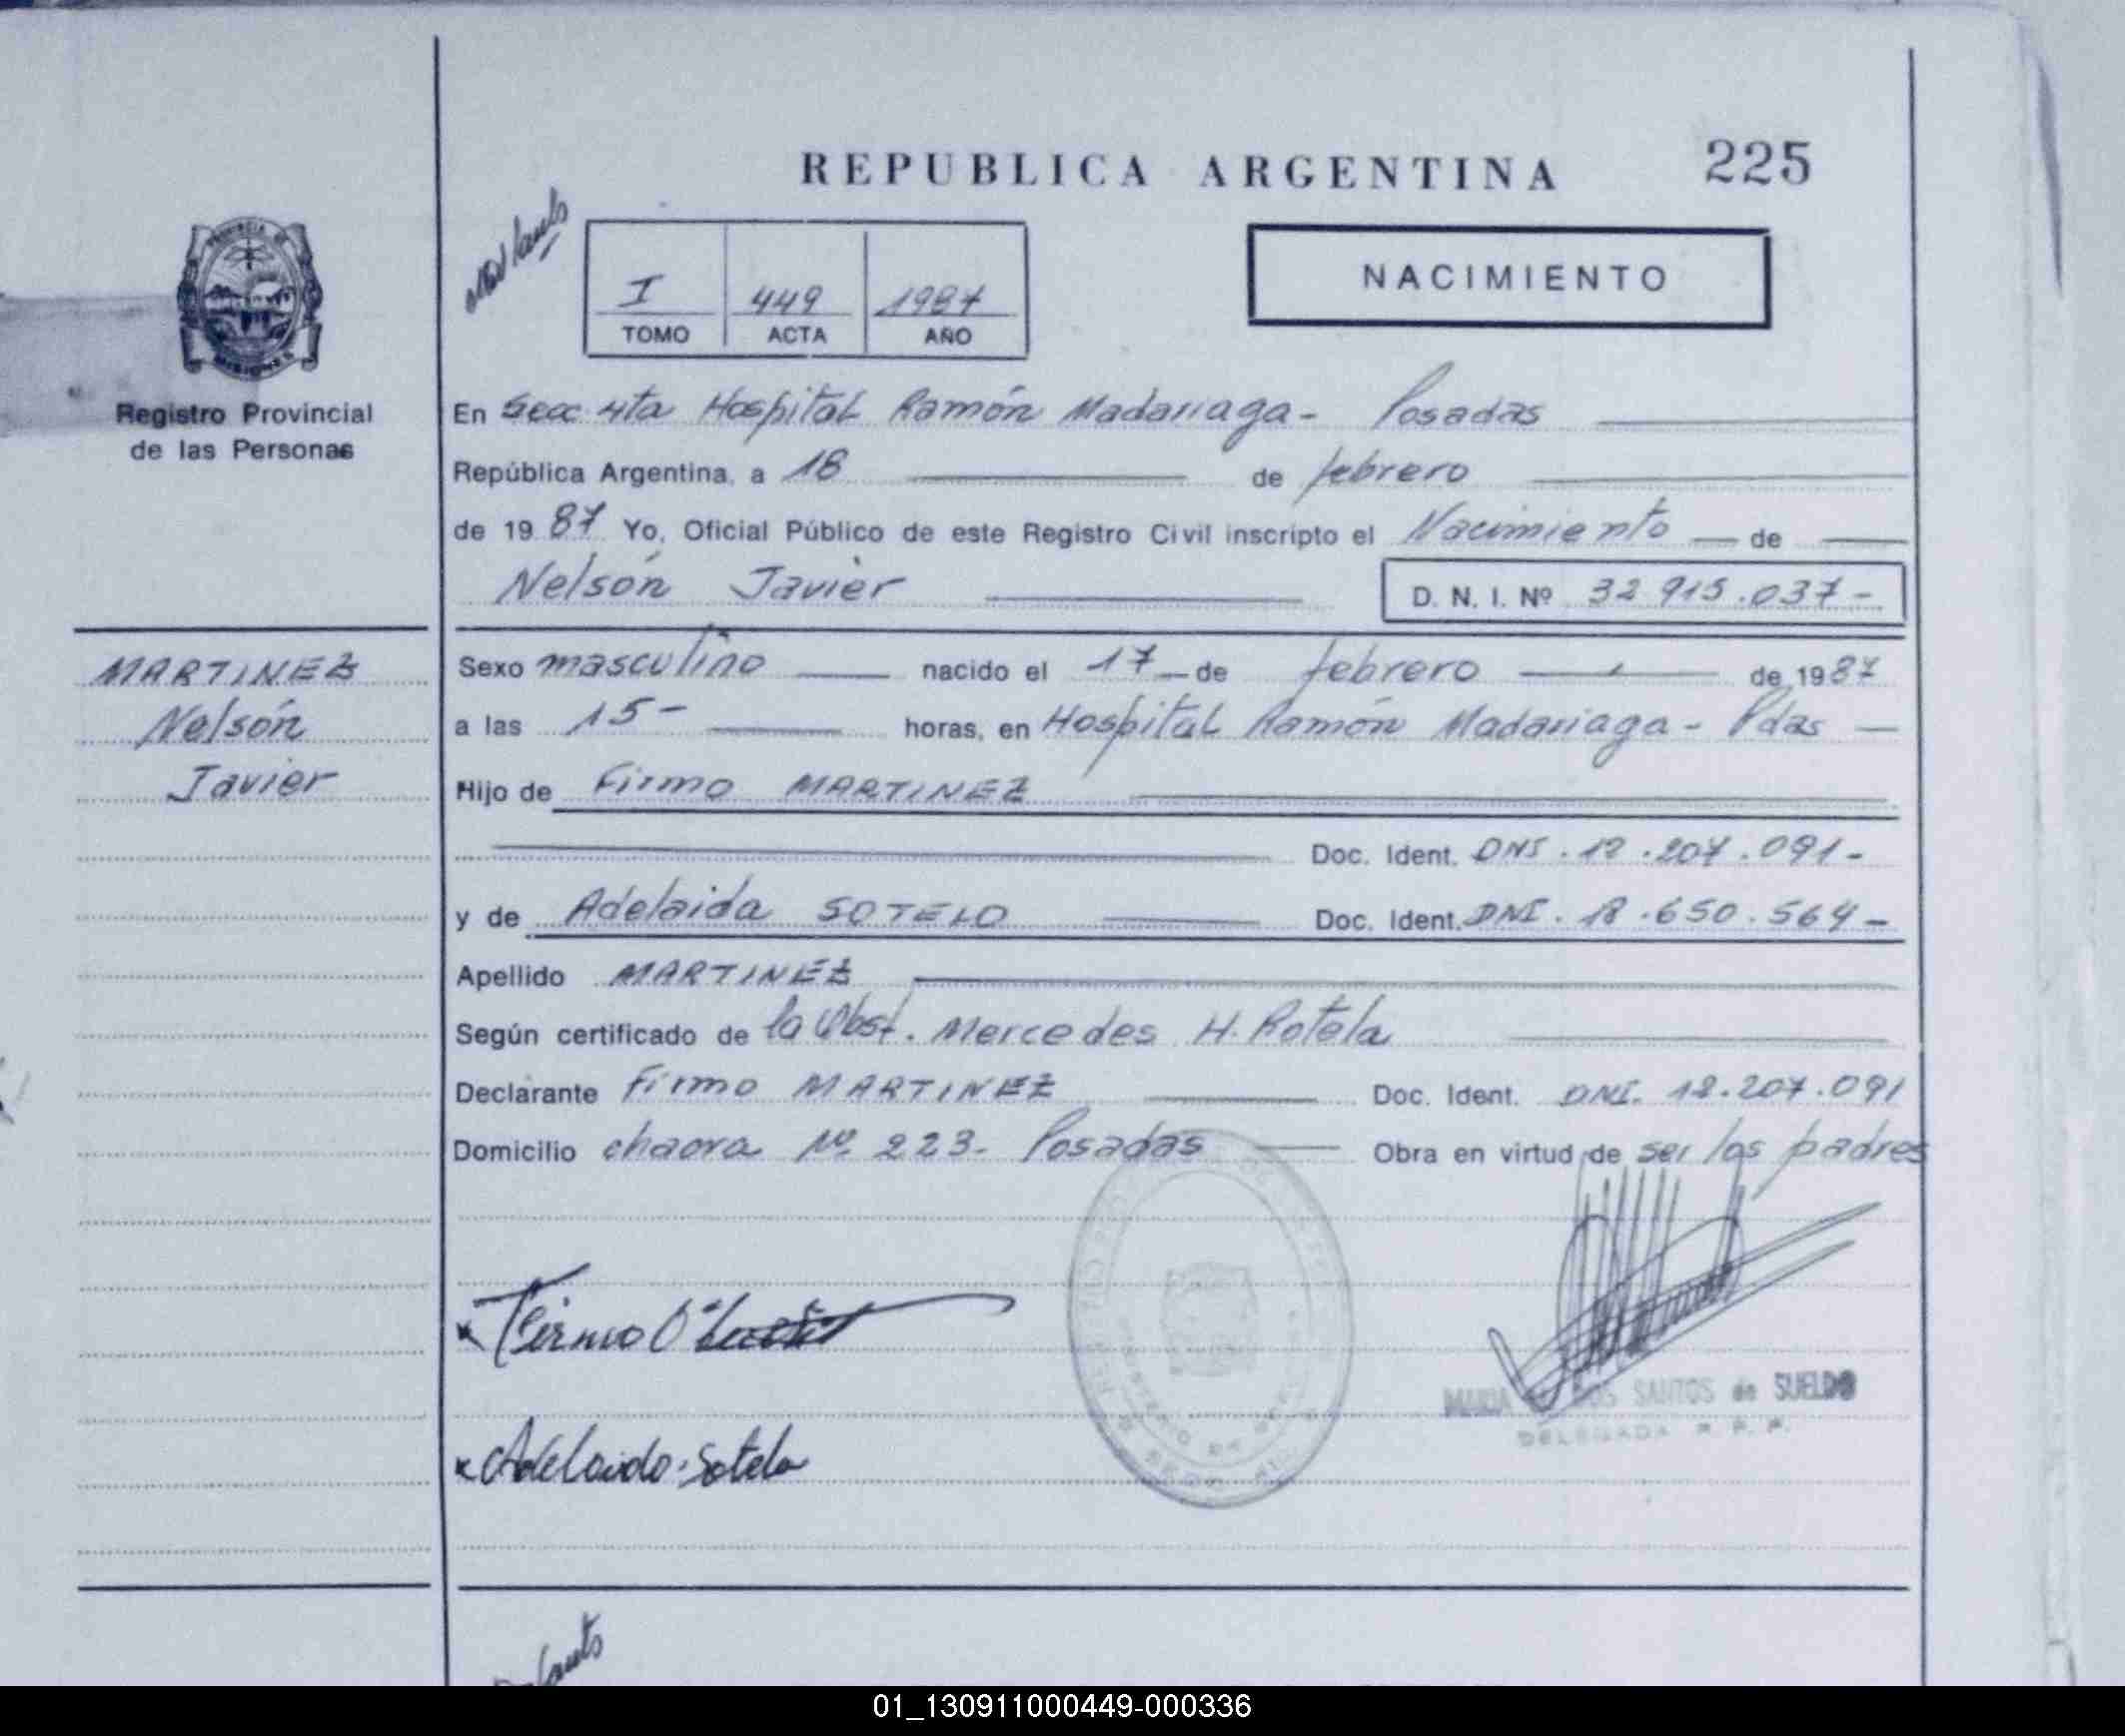 REPUBLICA ARGENTINA 225
PROVINCIA DE
MISIONES
Registro Provincial
de las Personas
I 449 1987
TOMO ACTA AÑO
NACIMIENTO
En Secc 4ta Hospital Ramón Madariaga - Posadas
República Argentina, a 18 de febrero
de 1987 Yo, Oficial Público de este Registro Civil inscripto el Nacimiento de
Nelsón Javier D. N. I. Nº 32 915.037-
MARTINEZ
Nelsón
Javier
Sexo masculino nacido el 17 de febrero de 1987
a las 15- horas, en Hospital Ramón Madariaga - Pdas
Hijo de Firmo MARTINEZ
Doc. Ident. DNI. 12.207.091-
y de Adelaida SOTELO Doc. Ident. DNI. 18.650.564-
Apellido MARTINEZ
Según certificado de la Obst. Mercedes H. Rotela
Declarante Firmo MARTINEZ Doc. Ident. DNI. 12.207.091
Domicilio chacra Nº 223- Posadas Obra en virtud de ser los padres
x Adelaida Sotelo
SANTOS de SUELDO
DELEGADA R. P. P.
01_130911000449-000336